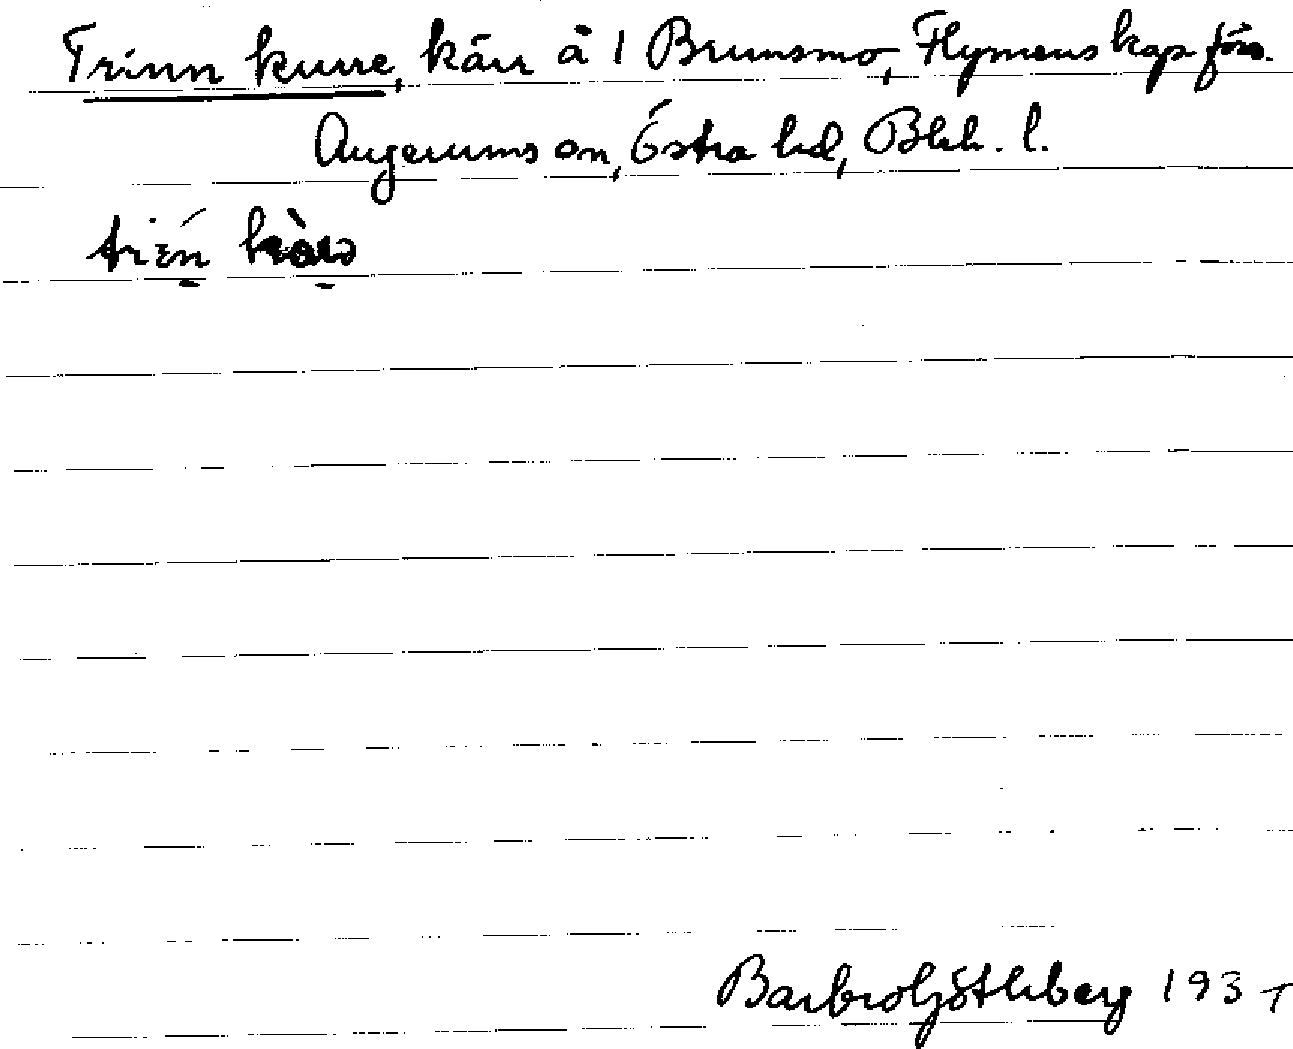 Trinn kurre, kärr å 1 Brunsmo, Flymens kapförs.
Augerums sn, Östra hd, Blek. l.
Barbro Göthberg 193